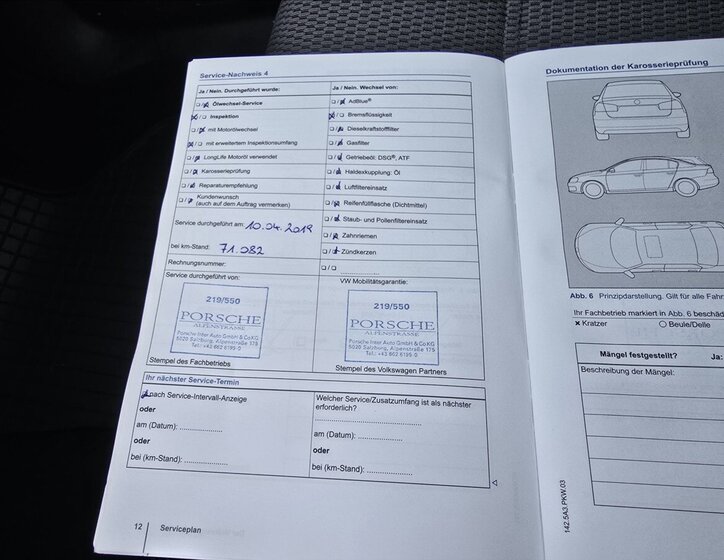 Service-Nachweis 4
Ja / Nein. Durchgeführt wurde:
Ja / Nein. Wechsel von:
Ölwechsel-Service
AdBlue®
Inspektion
Bremsflüssigkeit
mit Motorölwechsel
Dieselkraftstofffilter
mit erweitertem Inspektionsumfang
Gasfilter
LongLife Motoröl verwendet
Getriebeöl: DSG®, ATF
Karosserieprüfung
Haldexkupplung: Öl
Reparaturempfehlung
Luftfiltereinsatz
Kundenwunsch
(auch auf dem Auftrag vermerken)
Reifenfüllflasche (Dichtmittel)
Staub- und Pollenfiltereinsatz
Service durchgeführt am: 10.04.2019
Zahnriemen
bei km-Stand: 71.082
Zündkerzen
Rechnungsnummer:
Service durchgeführt von:
VW Mobilitätsgarantie:
219/550
PORSCHE
ALPENSTRASSE
Porsche Inter Auto GmbH & Co KG
5020 Salzburg, Alpenstraße 175
Tel.: +43 662 6195-0
219/550
PORSCHE
ALPENSTRASSE
Porsche Inter Auto GmbH & Co KG
5020 Salzburg, Alpenstraße 175
Tel.: +43 662 6195-0
Stempel des Fachbetriebs
Stempel des Volkswagen Partners
Ihr nächster Service-Termin
nach Service-Intervall-Anzeige
oder
am (Datum):
oder
bei (km-Stand):
Welcher Service/Zusatzumfang ist als nächster
erforderlich?
am (Datum):
oder
bei (km-Stand):
12
Serviceplan
Dokumentation der Karosserieprüfung
Abb. 6 Prinzipdarstellung. Gilt für alle Fahr
Ihr Fachbetrieb markiert in Abb. 6 beschäd
x Kratzer
O Beule/Delle
Mängel festgestellt?
Ja:
Beschreibung der Mängel:
142.5A3.PKW.03